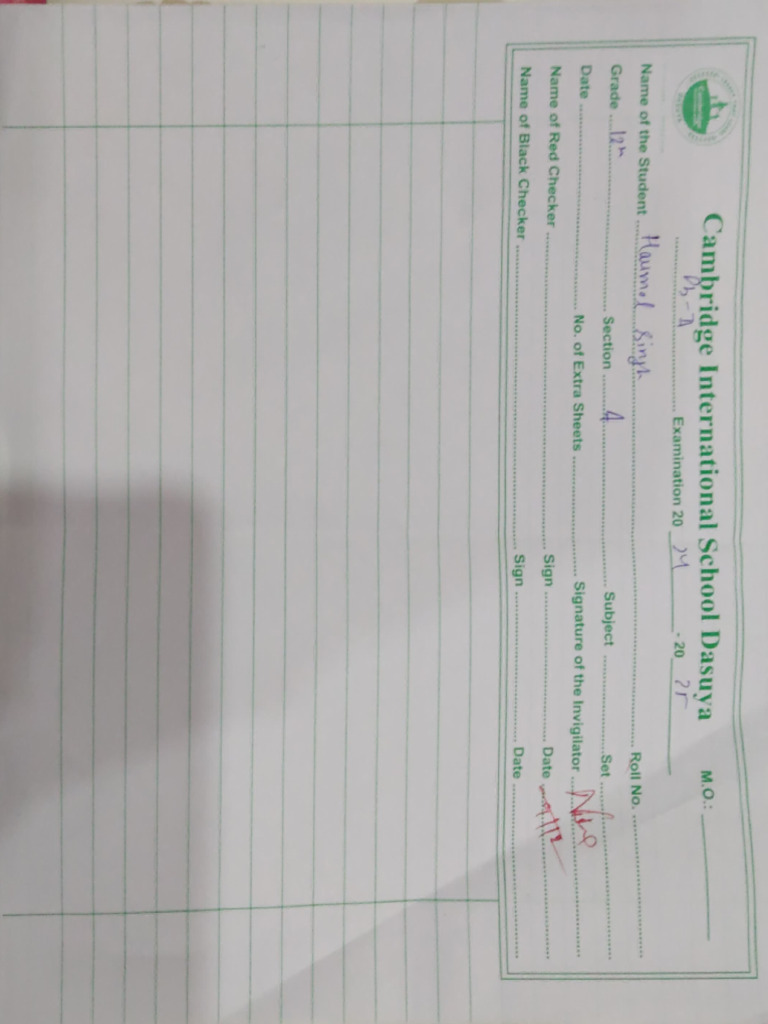 Cambridge International School Dasuya M.O.:
Examination 20 24 - 20 25
Name of the Student Singh Roll No.
Grade 12th Section A Subject Set
Date No. of Extra Sheets Signature of the Invigilator
Name of Red Checker Sign Date
Name of Black Checker Sign Date